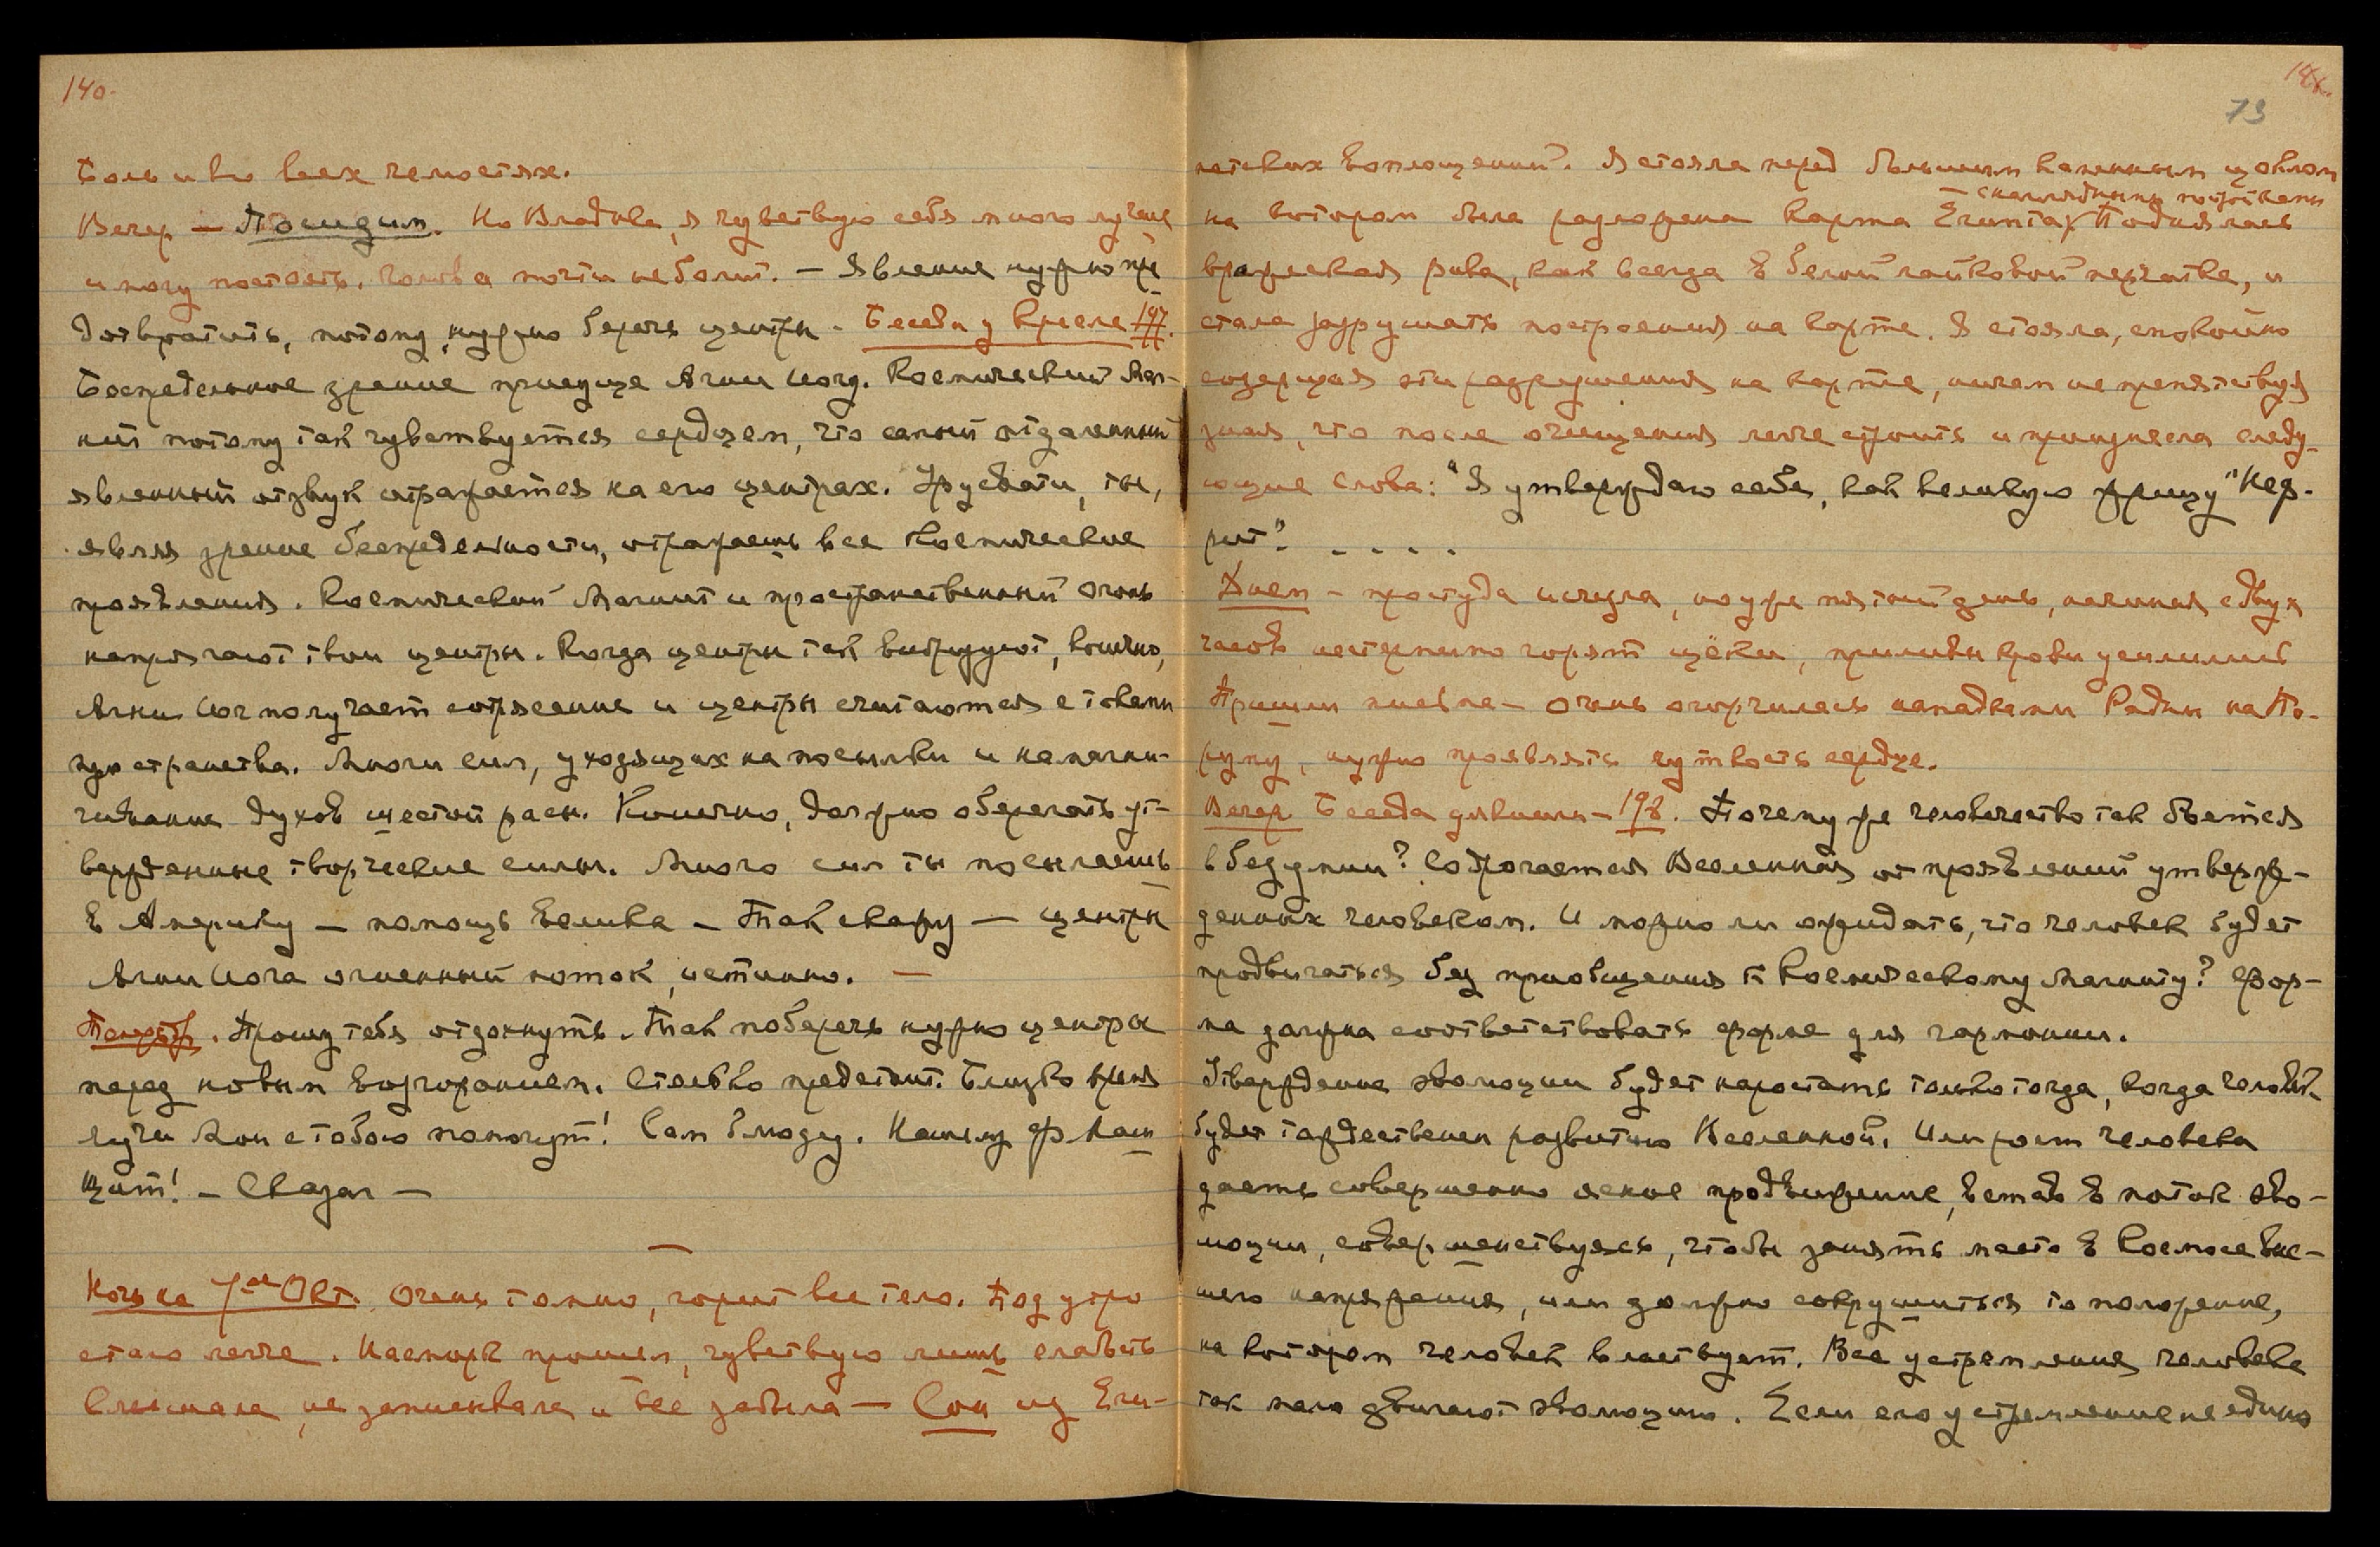 140.
Боль и во всех челюстях.
Вечер — Посидим. Но Владыка, я чувствую себя много лучше
и могу постоять. Голова почти не болит. — Явление нужно пре-
дотвратить, потому нужно беречь центры — Беседы у кресла 197.
Беспредельное зрение присуще Агни Йогу. Космический Маг-
нит потому так чувствуется сердцем, что самый отдаленный
явленный отзвук отражается на его центрах. Урусвати, ты,
являя зрение беспредельности, отражаешь все Космические
проявления. Космический Магнит и пространственный огонь
напрягают твои центры. Когда центры так вибрируют, конечно,
Агни Йог получает сотрясение и центры считаются с токами
пространства. Много сил, уходящих на посылки и намагни-
чивание духов шестой расы. Конечно, должно оберегать ут-
вержденные творческие силы. Много сил ты посылаешь
в Америку — помощь велика — Так скажу — центры
Агни Йога огненный поток, истинно. —
Прошу тебя отдохнуть. Так поберечь нужно центры
перед новым возгоранием. Столько предстоит. Близко время
лучи Мои с тобою помогут! Сам блюду. Нашему Ф. Наш
Щит! — Сказал —
Ночь на 7ое Окт. Очень томно, горит все тело. Под утро
стало легче. Насморк прошел, чувствую лишь слабость
Слышала, не записывала и все забыла — Сон из Еги-
141.
73
петских воплощений. Я стояла перед большим каменным цоклом
— с постройками
на котором была разложена карта Египта. Поднялась
вражеская рука, как всегда в белой лайковой перчатке, и
стала разрушать построения на карте. Я стояла, спокойно
созерцая эти разрушения на карте, ничем не препятствуя
зная, что после очищения легче строить и произнесла следу-
ющие слова: "Я утверждаю себя, как великую жрицу "Неф-
рит". . . . .
Днем — простуда исчезла, но уже пятый день, начиная с двух
часов нестерпимо горят щёки, приливы крови усилились
Пришли письма — очень огорчилась нападками Радны на По-
руму, нужно проявлять чуткость сердца.
Вечер Беседа 198. Почему же человечество так бьется
в безумии? Содрогается Вселенная от проявлений утверж-
денных человеком. И можно ли ожидать, что человек будет
продвигаться без приобщения к Космическому Магниту? Фор-
ма должна соответствовать форме для гармонии.
Утверждение эволюции будет наростать только тогда, когда человек
будет тождественен развитию Вселенной. Или рост человека
даст совершенно ясное продвижение, встав в поток эво-
люции, совершенствуясь, чтобы занять место в Космосе выс-
шего напряжения, или должно сокрушиться то положение,
на котором человек властвует. Все устремления человека
так мало двигают эволюцию. Если его устремление не едино